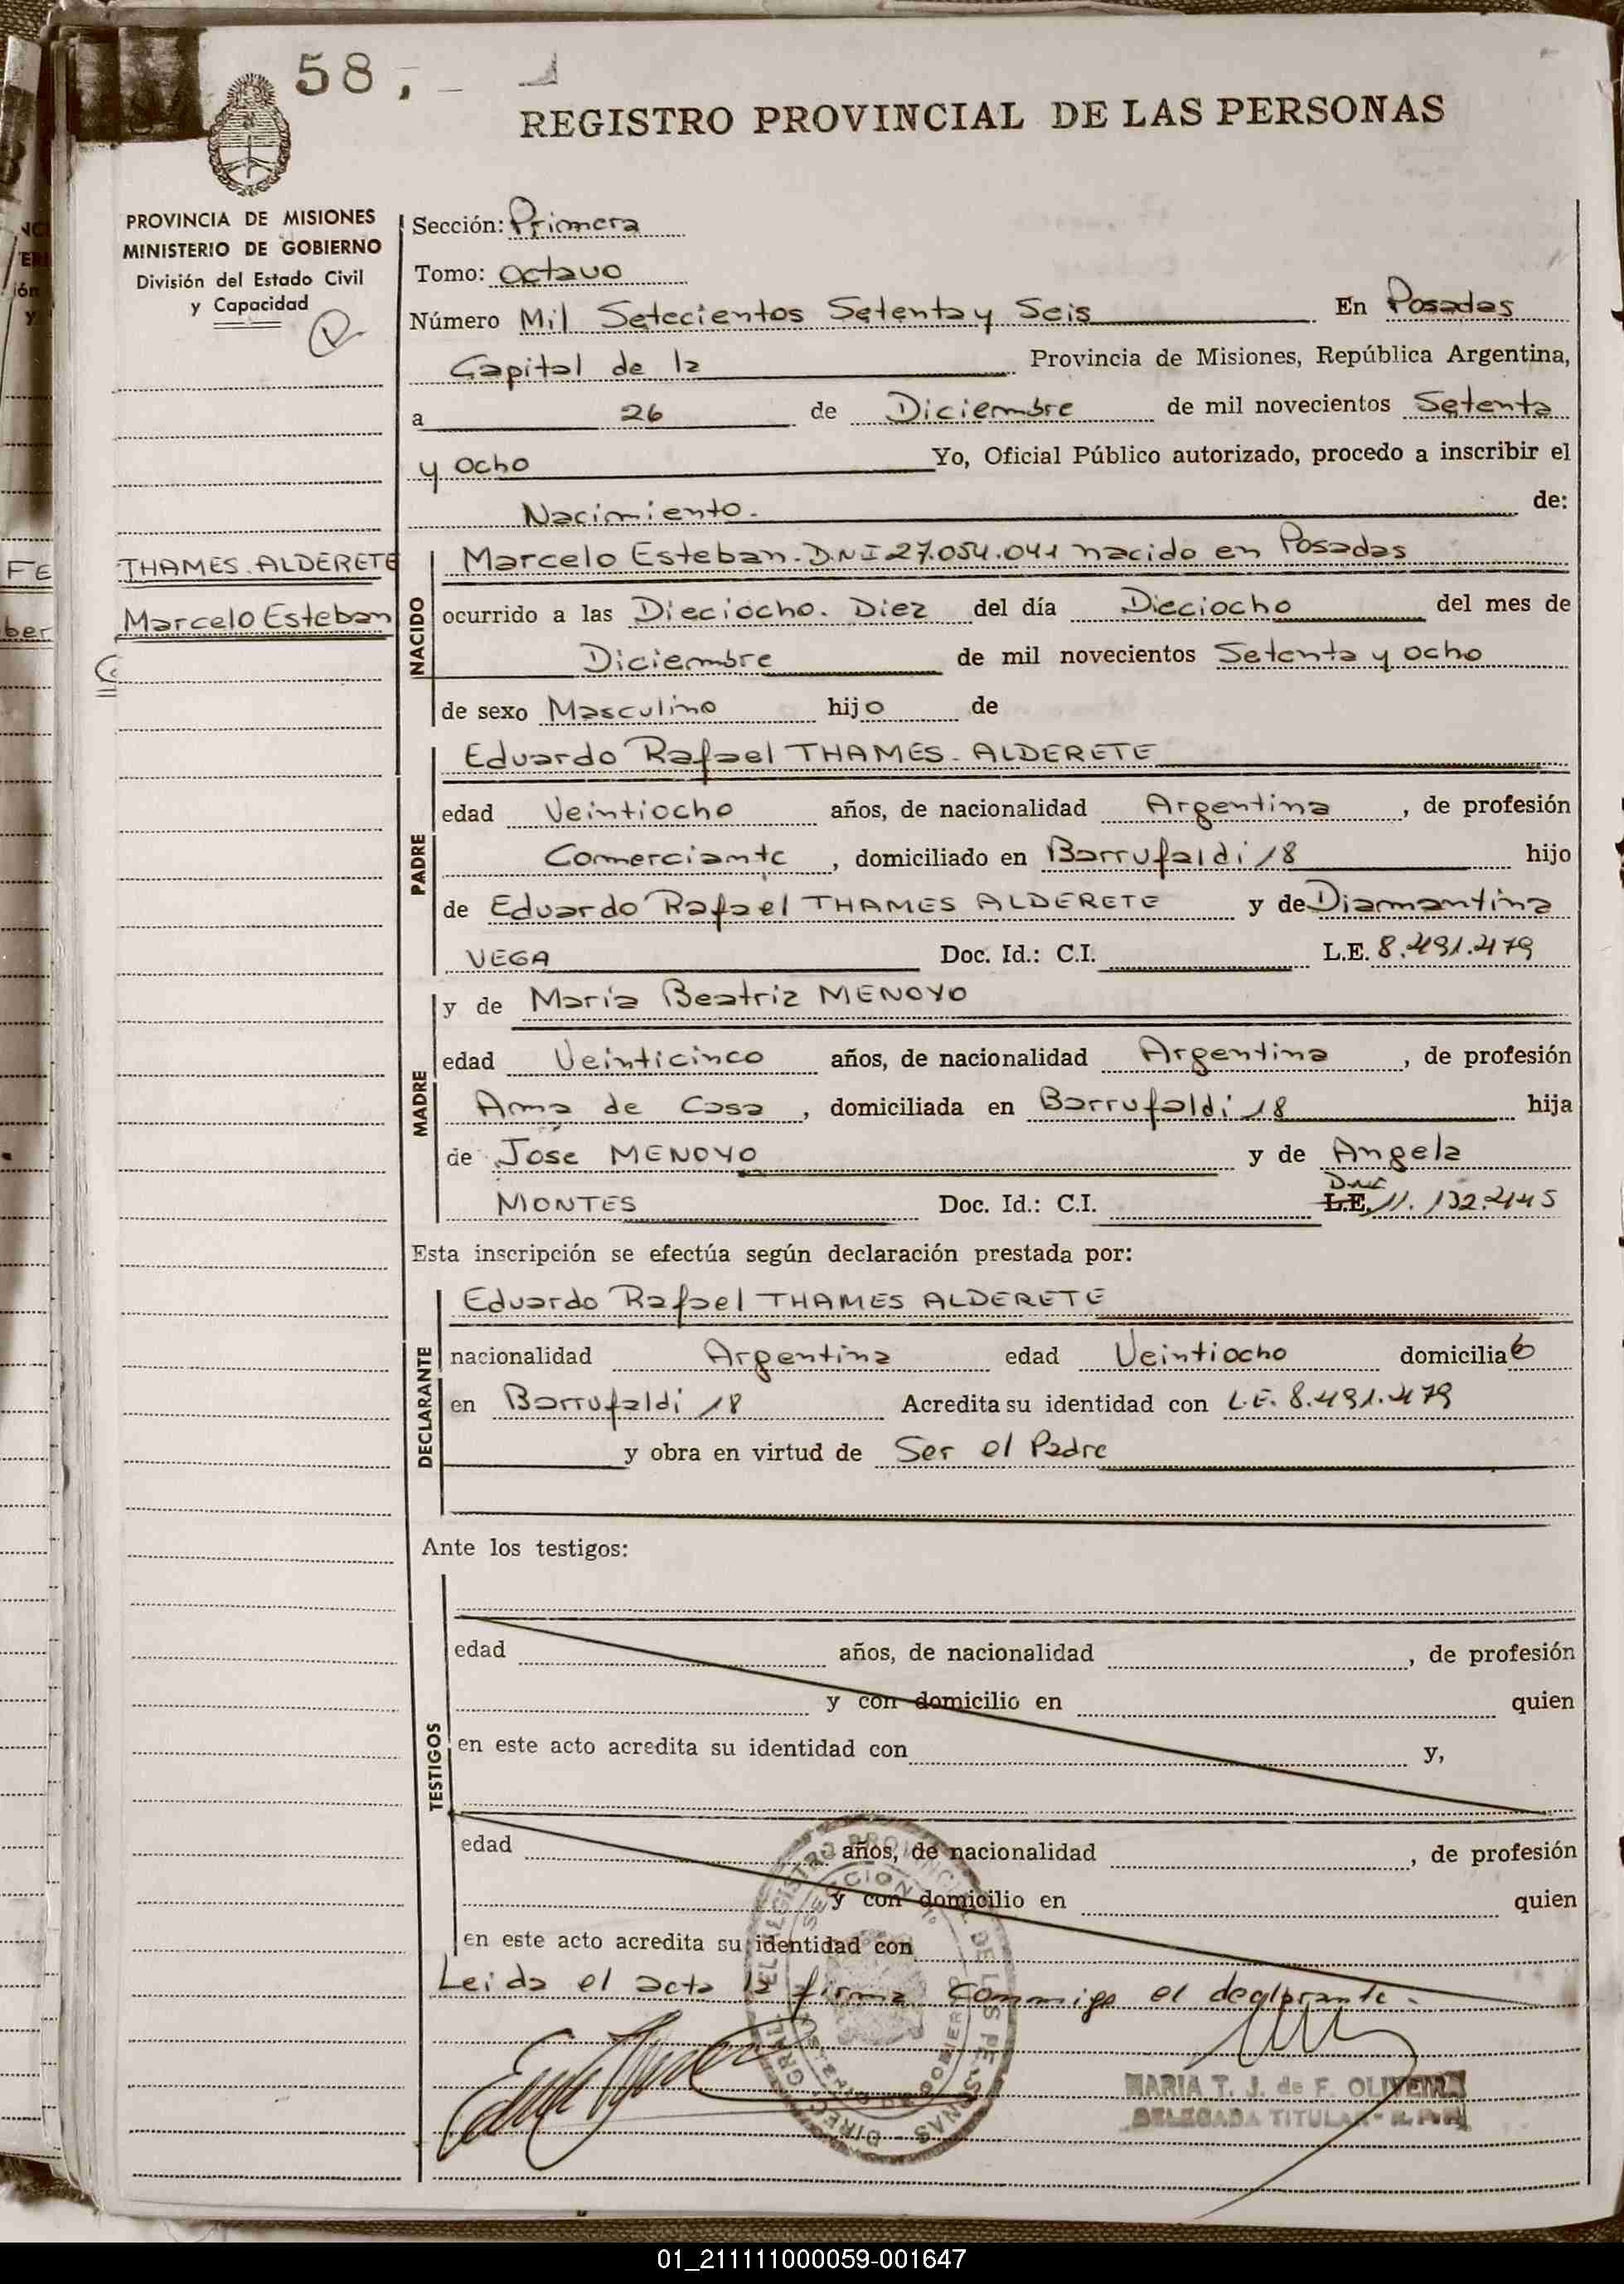 58,-
REGISTRO PROVINCIAL DE LAS PERSONAS
PROVINCIA DE MISIONES
MINISTERIO DE GOBIERNO
División del Estado Civil
y Capacidad
THAMES ALDERETE
Marcelo Esteban
Sección: Primera
Tomo: Octavo
Número Mil Setecientos Setenta y Seis En Posadas
Capital de la Provincia de Misiones, República Argentina,
a 26 de Diciembre de mil novecientos Setenta
y ocho Yo, Oficial Público autorizado, procedo a inscribir el
Nacimiento. de:
NACIDO
Marcelo Esteban. DNI 27.054.041 nacido en Posadas
ocurrido a las Dieciocho. Diez del día Dieciocho del mes de
Diciembre de mil novecientos Setenta y ocho
de sexo Masculino hijo de
PADRE
Eduardo Rafael THAMES ALDERETE
edad Veintiocho años, de nacionalidad Argentina, de profesión
Comerciante, domiciliado en Barrufaldi 18 hijo
de Eduardo Rafael THAMES ALDERETE y de Diamantina
VEGA Doc. Id.: C.I. L.E. 8.491.479
MADRE
y de María Beatriz MENOYO
edad Veinticinco años, de nacionalidad Argentina, de profesión
Ama de Casa, domiciliada en Barrufaldi 18 hija
de José MENOYO y de Angela
MONTES Doc. Id.: C.I. L.E. DNI 11.132.445
Esta inscripción se efectúa según declaración prestada por:
DECLARANTE
Eduardo Rafael THAMES ALDERETE
nacionalidad Argentina edad Veintiocho domiciliado
en Barrufaldi 18 Acredita su identidad con L.E. 8.491.479
y obra en virtud de Ser el Padre
Ante los testigos:
TESTIGOS
edad años, de nacionalidad , de profesión
y con domicilio en quien
en este acto acredita su identidad con y,
edad años, de nacionalidad , de profesión
y con domicilio en quien
en este acto acredita su identidad con
Leida el acta la firma conmigo el declarante.
MARIA T. J. de F. OLIVEIRA
DELEGADA TITULAR - R. P. P.
01_211111000059-001647